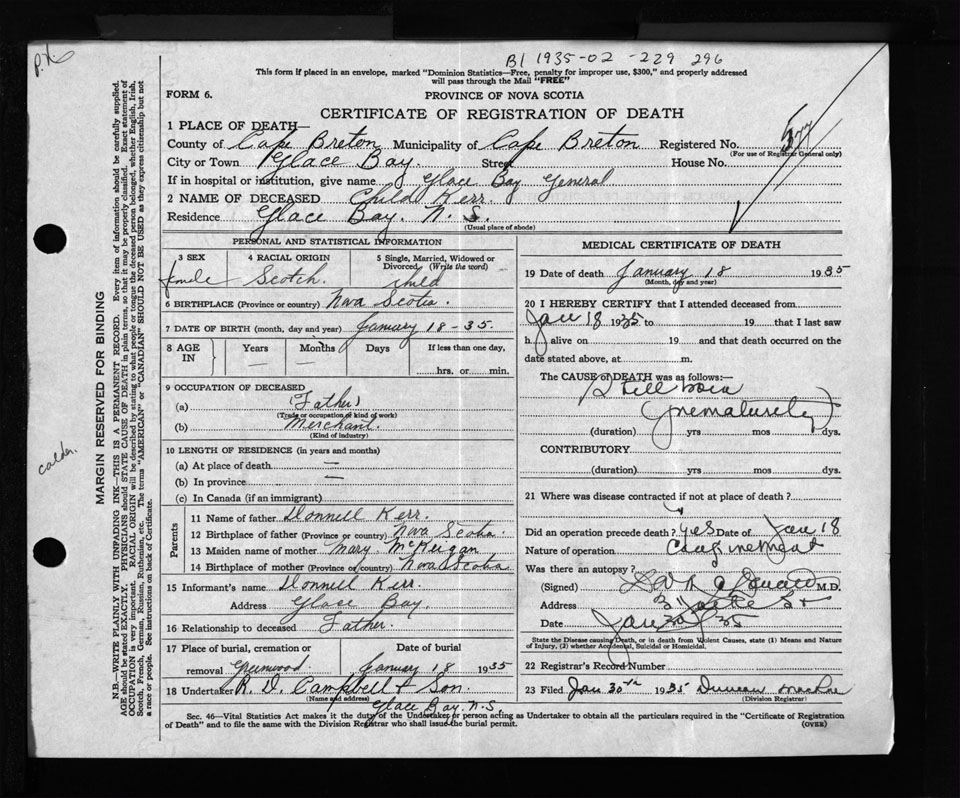 P.X.
B1 1935-02-229 296
This form if placed in an envelope, marked "Dominion Statistics—Free, penalty for improper use, $300," and properly addressed
will pass through the Mail "FREE"
FORM 6.
PROVINCE OF NOVA SCOTIA
CERTIFICATE OF REGISTRATION OF DEATH
1 PLACE OF DEATH—
County of Cape Breton Municipality of Cape Breton Registered No.
(For use of Registrar General only)
City or Town Glace Bay. Street House No.
If in hospital or institution, give name Glace Bay General
2 NAME OF DECEASED Child Kerr.
Residence Glace Bay. N. S.
(Usual place of abode)
PERSONAL AND STATISTICAL INFORMATION
3 SEX 4 RACIAL ORIGIN 5 Single, Married, Widowed or Divorced. (Write the word)
Scotch. child
6 BIRTHPLACE (Province or country) Nova Scotia.
7 DATE OF BIRTH (month, day and year) January 18-35.
8 AGE IN Years Months Days If less than one day,
hrs. or min.
9 OCCUPATION OF DECEASED
(a) (Father)
(Trade or occupation or kind of work)
(b) Merchant.
(Kind of industry)
10 LENGTH OF RESIDENCE (in years and months)
(a) At place of death —
(b) In province —
(c) In Canada (if an immigrant)
Parents
11 Name of father Donnell Kerr.
12 Birthplace of father (Province or country) Nova Scotia.
13 Maiden name of mother Mary McKeigan
14 Birthplace of mother (Province or country) Nova Scotia
15 Informant's name Donnell Kerr.
Address Glace Bay.
16 Relationship to deceased Father.
17 Place of burial, cremation or removal Greenwood. Date of burial January 18 1935
18 Undertaker R. D. Campbell & Son.
(Name and address)
Glace Bay. N.S.
MEDICAL CERTIFICATE OF DEATH
19 Date of death January 18 1935
(Month, day and year)
20 I HEREBY CERTIFY that I attended deceased from
Jan 18 1935 to 19 that I last saw
h alive on 19 and that death occurred on the
date stated above, at m.
The CAUSE OF DEATH was as follows:—
Still born
(prematurely)
(duration) yrs mos dys.
CONTRIBUTORY
(duration) yrs mos dys.
21 Where was disease contracted if not at place of death?
Did an operation precede death? yes Date of Jan 18
Nature of operation Confinement
Was there an autopsy?
(Signed) M.D.
Address
Date Jan 20/35
State the Disease causing Death, or in death from Violent Causes, state (1) Means and Nature
of Injury, (2) whether Accidental, Suicidal or Homicidal.
22 Registrar's Record Number
23 Filed Jan 30th 1935 Duncan MacRae
(Division Registrar)
Sec. 46—Vital Statistics Act makes it the duty of the Undertaker or person acting as Undertaker to obtain all the particulars required in the "Certificate of Registration
of Death" and to file the same with the Division Registrar who shall issue the burial permit.
(OVER)
MARGIN RESERVED FOR BINDING
N.B.—WRITE PLAINLY WITH UNFADING INK—THIS IS A PERMANENT RECORD. Every item of information should be carefully supplied.
AGE should be stated EXACTLY, PHYSICIANS should STATE CAUSE OF DEATH in plain terms, so that it may be properly classified. Exact statement of
OCCUPATION is very important. RACIAL ORIGIN will be described by stating to what people or tongue the deceased person belonged, whether English, Irish,
Scotch, French, German, Russian, Ruthenian, etc. The terms "AMERICAN" or "CANADIAN" SHOULD NOT BE USED as they express citizenship but not
a race or people. See instructions on back of Certificate.